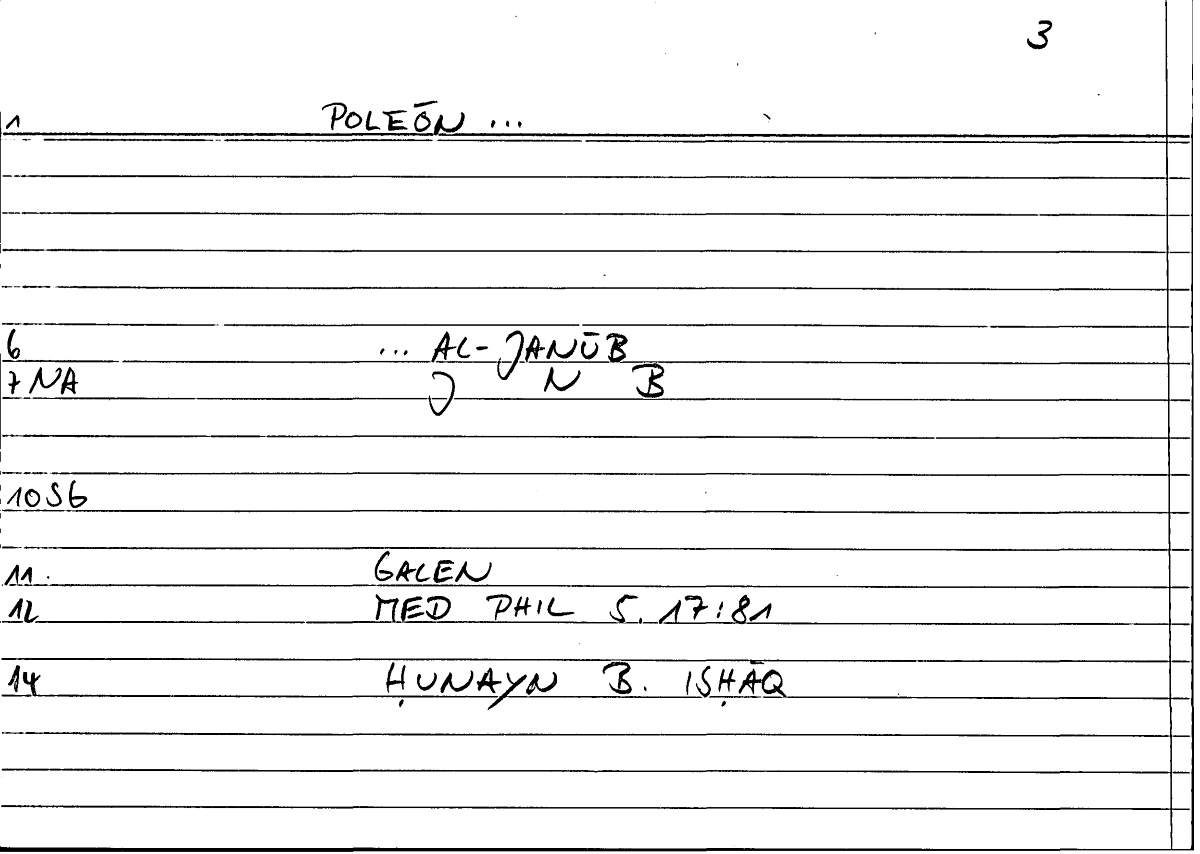 3
1 POLEŌN ...
6 ... AL-JANŪB
7 NA J N B
10 SG
11. GALEN
12 MED PHIL 5.17:81
14 ḤUNAYN B. ISḤĀQ